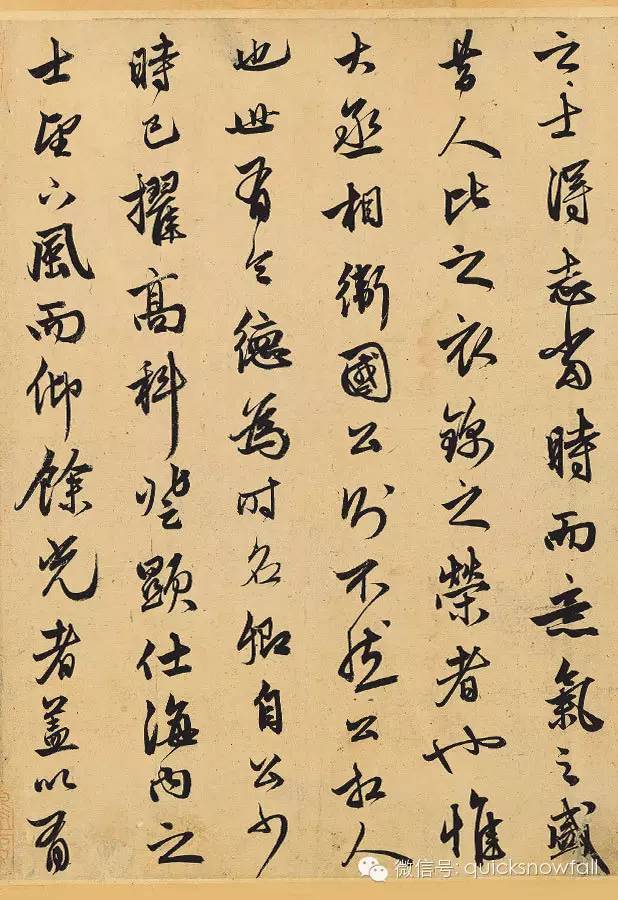 之士得志當時而意氣之盛
昔人比之衣錦之榮者也惟
大丞相衛國公則不然公相人
也世有令德為时名卿自公少
時已擢高科登顯仕海內之
士望下風而仰餘光者蓋以有
微信号: quicksnowfall